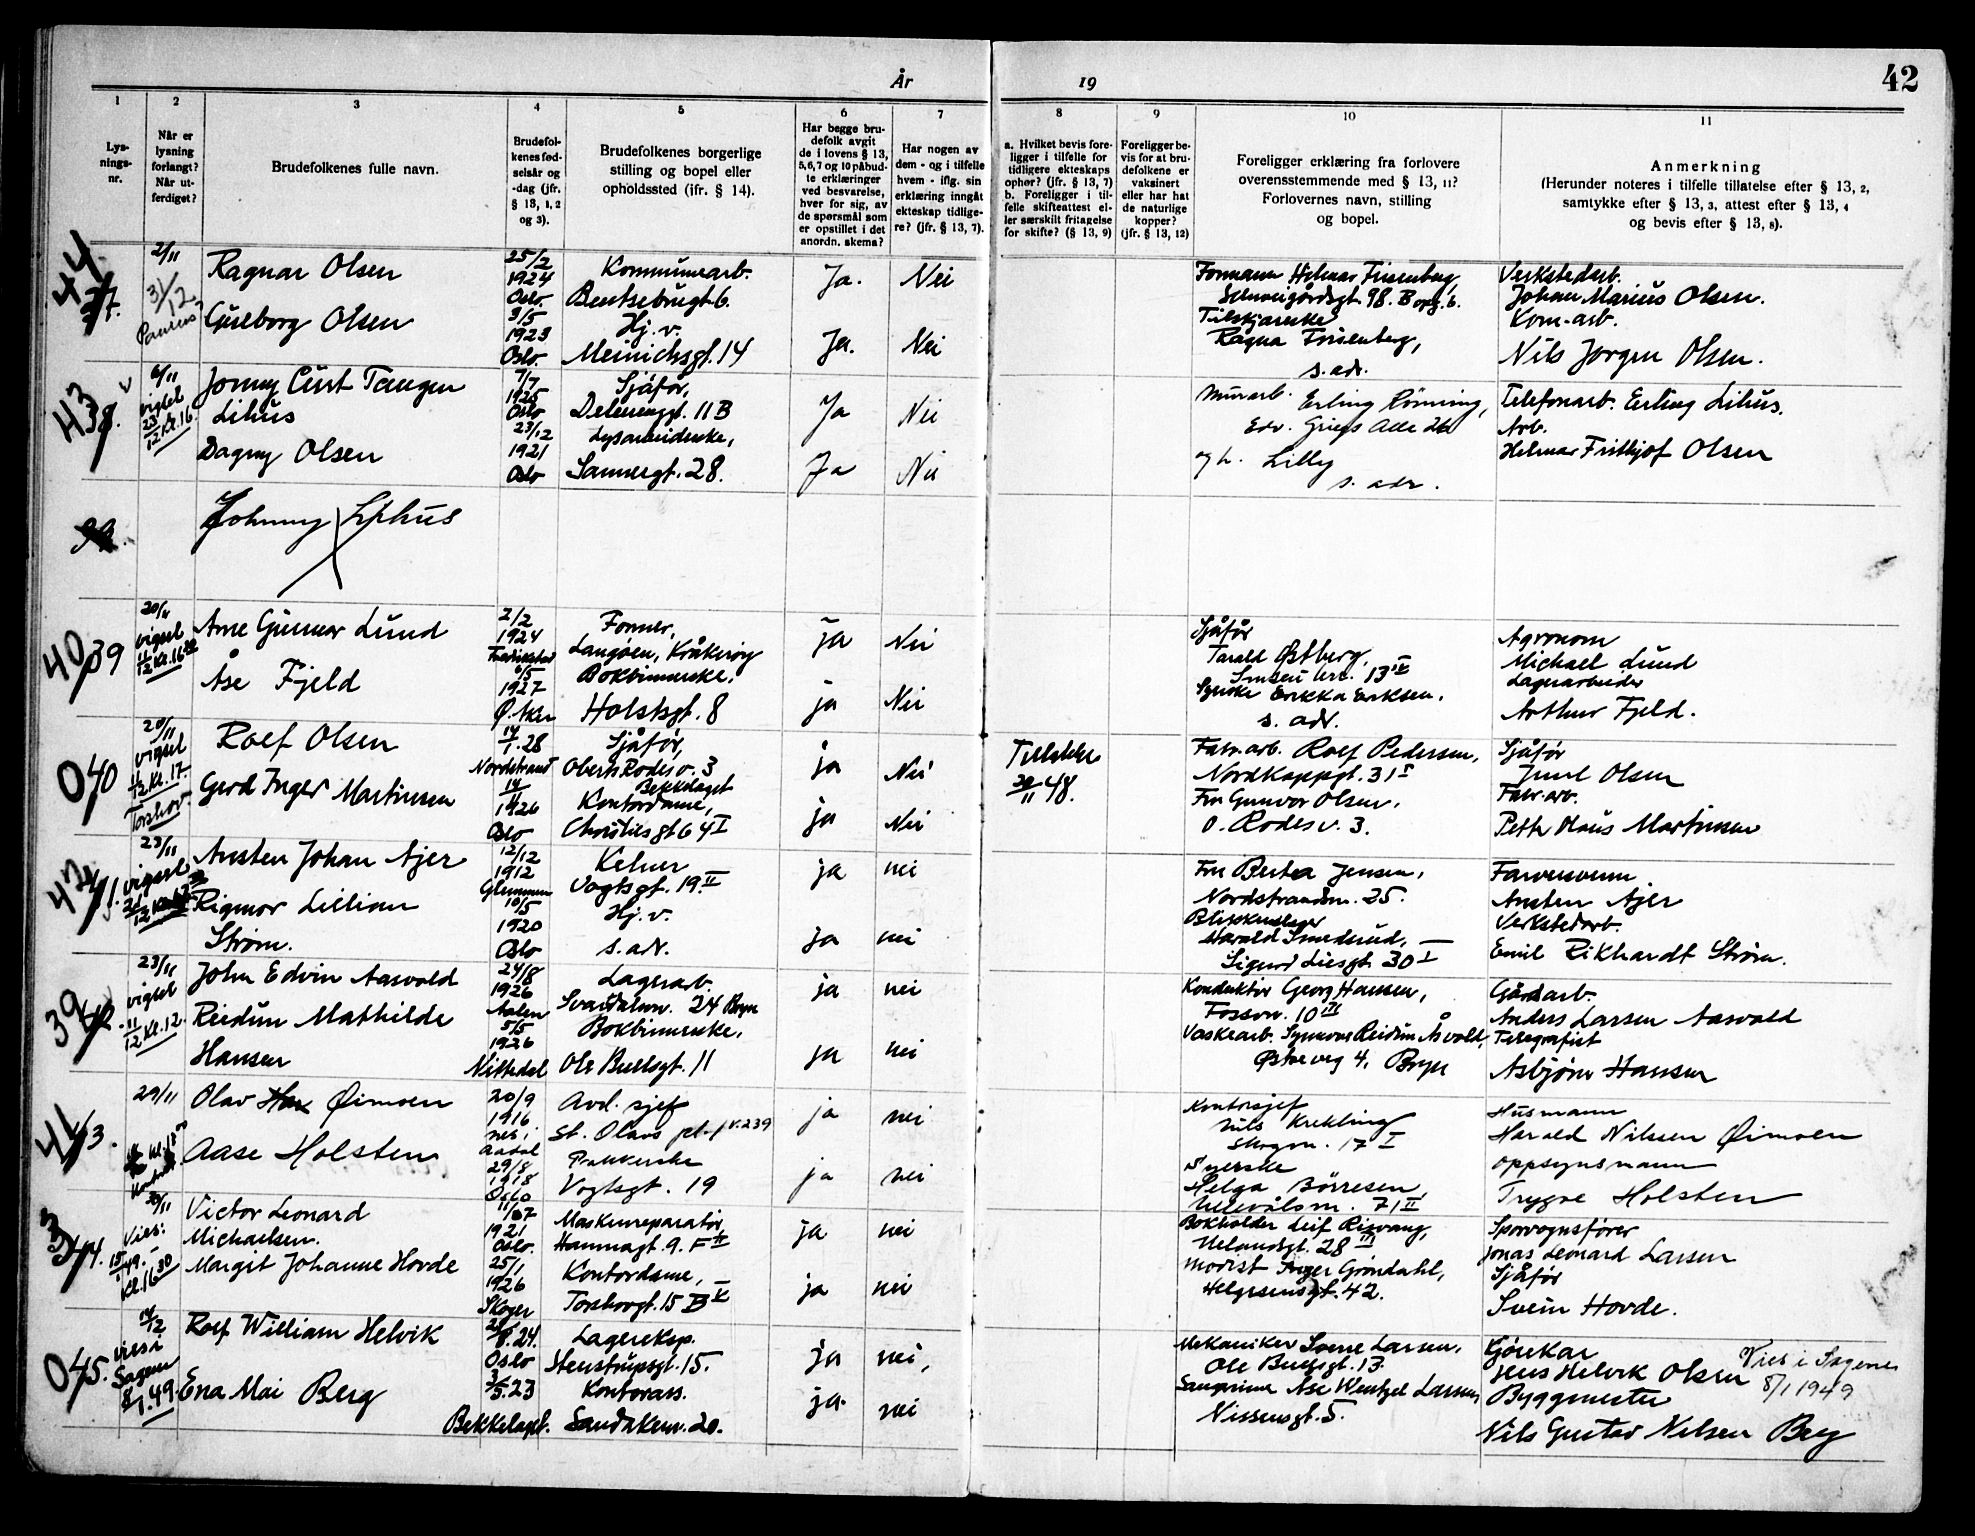 År
19
42
1
2
3
4
5
6
7
8
9
10
11
Lys-
nings-
nr.
Når er
lysning
forlangt?
Når ut-
ferdiget?
Brudefolkenes fulle navn.
Brudefol-
kenes fød-
selsår og
-dag (jfr.
§ 13, 1, 2
og 3).
Brudefolkenes borgerlige
stilling og bopel eller
opholdssted (ifr. § 14).
Har begge bru-
defolk avgit
de i lovens § 13,
5,6,7 og 10 påbud-
te erklæringer
ved besvarelse,
hver for sig, av
de spørsmål som
er opstillet i det
anordn. skema?
Har nogen av
dem - og i tilfelle
hvem - iflg. sin
erklæring inngåt
ekteskap tidlige-
re? (jfr. § 13, 7).
a. Hvilket bevis fore-
ligger i tilfelle for
tidligere ekteskaps
ophør? (jfr. § 13, 7)
b. Foreligger i til-
felle skifteattest el-
ler særskilt fritagelse
for skifte? (§ 13, 9)
Foreligger be-
vis for at bru-
defolkene er
vaksinert
eller har hat
de naturlige
kopper?
(jfr. § 13, 12)
Foreligger erklæring fra forlovere
overensstemmende med § 13, 11?
Forlovernes navn, stilling
og bopel.
Anmerkning
(Herunder noteres i tilfelle tillatelse efter § 13, 2,
samtykke efter § 13, 3, attest efter § 13, 4
og bevis efter § 13, 8).
44
2/11
31/12
Ragnar Olsen
25/2
1924
Oslo
Kommunearb.
Bentsebrugt 6.
Ja.
Nei
Guleborg Olsen
3/5
1923
Oslo.
Hj. v.
Meinichsgt. 14
Ja.
Nei
Formann Hilmar Frisenberg,
Schweigårdsgt 98. B opg. 6.
Tilskjærerske
Ragna Frisenberg,
s. adr.
Verkstedarb.
Johan Marius Olsen.
Kom.-arb.
Nils Jørgen Olsen.
43
38.
6/11
vigsel
23/12 Kl. 16
Jonny Curt Tangen
Lihus
Dagny Olsen
7/7
1925
Oslo
23/12
1921
Oslo
Sjåfør,
Delenenggt. 11 B
Sannergt. 28.
Ja
Nei
Ja
Nei
Murarb. Erling Rønning,
Edv. Griegs Alle 26
og h. Lilly
s. adr.
Telefonarb. Erling Lihus.
Arb.
Helmer Frithjof Olsen
Johnny Lihus
40
39
20/11
vigsel
11/12 Kl. 16
Arne Gunnar Lund
Åse Fjeld
2/2
1924
Fredrikstad
6/5
1927
Ø. Aker
Former,
Langøen, Kråkerøy
Bokbinnerske.
Holstsgt. 8
ja
Nei
ja
Nei
Sjåfør
Tarald Østberg,
Sinsen terr. 13 IV
Syerske Erikka Eriksen.
s. adr.
Agronom
Michael Lund
Lagerarbeider
Arthur Fjeld.
0
40
20/11
vigsel
Kl. 17.
Torshov.
Rolf Olsen
Gerd Inger Martinsen
14/1. 28
Nordstrand
14/11
1926
Oslo
Sjåfør,
Oberst Rodes v. 3
Bekkelaget
Kontordame,
Christies gt 64 I
ja
Nei
ja
Nei
Tillatelse
29/11 48.
Fabr. arb. Rolf Pedersen,
Nordkappgt. 31 I
Fru Gunvor Olsen,
O. Rodes v. 3.
Sjåfør
Juul Olsen
Fabr. arb.
Petter Olaus Martinsen
42
41.
23/11
vigsel
Austen Johan Ajer
Rigmor Lillian
Strøm.
12/12
1912
Glemmen
10/5
1920
Oslo
Kelner
Vogtsgt. 19 II
Hj. v.
s. adr.
ja
nei
ja
nei
Fru Berta Jensen,
Nordstrandsvn. 25.
Blikkenslager
Harald Smedsrud,
Sigurd Liesgt 30 I
Farversvenn
Austen Ajer
Verkstedarb.
Emil Rikhardt Strøm.
39
42
23/11
vigsel
11/12 Kl. 12.
John Edvin Aasvold
Reidun Mathilde
Hansen
24/8
1926
Aalen
5/5
1926
Nittedal
Lagerarb.
Svartdalsvn. 24 Bryn
Bokbinnerske.
Ole Bullsgt. 11
ja
nei
ja
nei
Konduktør Georg Hansen,
Fossvn. 10 III
Vaskearb. Synnøve Reidun Åsvold,
Østreveg 4, Bryn
Gårdarb.
Anders Larsen Aasvold
Telegrafist
Asbjørn Hansen
41
43.
29/11
Olav Øimoen
Aase Holsten
20/9
1916
nes i
Aadal
29/8
1918
Oslo
Avd. sjef
St. Olavs pl. 1 v. 239
Pakkerske
Vogtsgt. 19
ja
nei
ja
nei
Kontorsjef
Nils Krekling
Skogvn. 17 I
Syerske
Helga Børresen
Ullevålsvn. 71 II
Husmann
Harald Nilssen Øimoen
oppsynsmann
Trygve Holsten
3
44.
30/11
Vies:
15/1 49.
Kl. 16 30
Victor Leonard
Michaelsen.
Margit Johanne Hovde
11/07
1921
Oslo.
25/1
1926
Skoger
Maskinreparatør,
Hammagt. 9. F II
Kontordame,
Torshovgt. 15 B V
ja
nei
ja
nei
Bokholder Leif Risvang,
Uelandsgt. 28 III
Modist Inger Grøndahl,
Helgesensgt. 42.
Sporvognsfører
Jonas Leonard Larsen
Sjåfør
Svein Hovde.
0
45.
14/12
vies i
Sagene
8/1. 49.
Rolf William Helvik
Ena Mai Berg
8. 24.
Oslo
3/5. 23
Bekkelaget.
Lagereksp.
Stenstrupsgt. 15.
Kontorass.
Sandakerv. 20.
ja
nei,
ja.
nei
Mekaniker Sverre Larsen.
Ole Bullsgt. 13.
Sangerinne Åse Wentzel Larsen,
Nissensgt. 5.
Gjørtler
Jens Helvik Olsen
Vies i Sagene
8/1 1949
Byggmester
Nils Gustav Nilsen Berg